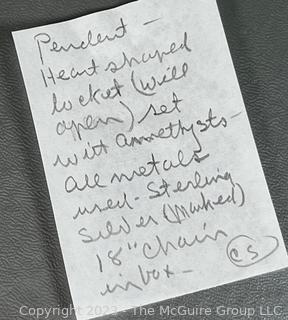 Pendent —
Heart shaped
locket (will
open) set
with ammetysts —
all metals
used - Sterling
silver (marked)
18" Chain
in box —
CS
Copyright 2023 - The McGuire Group LLC